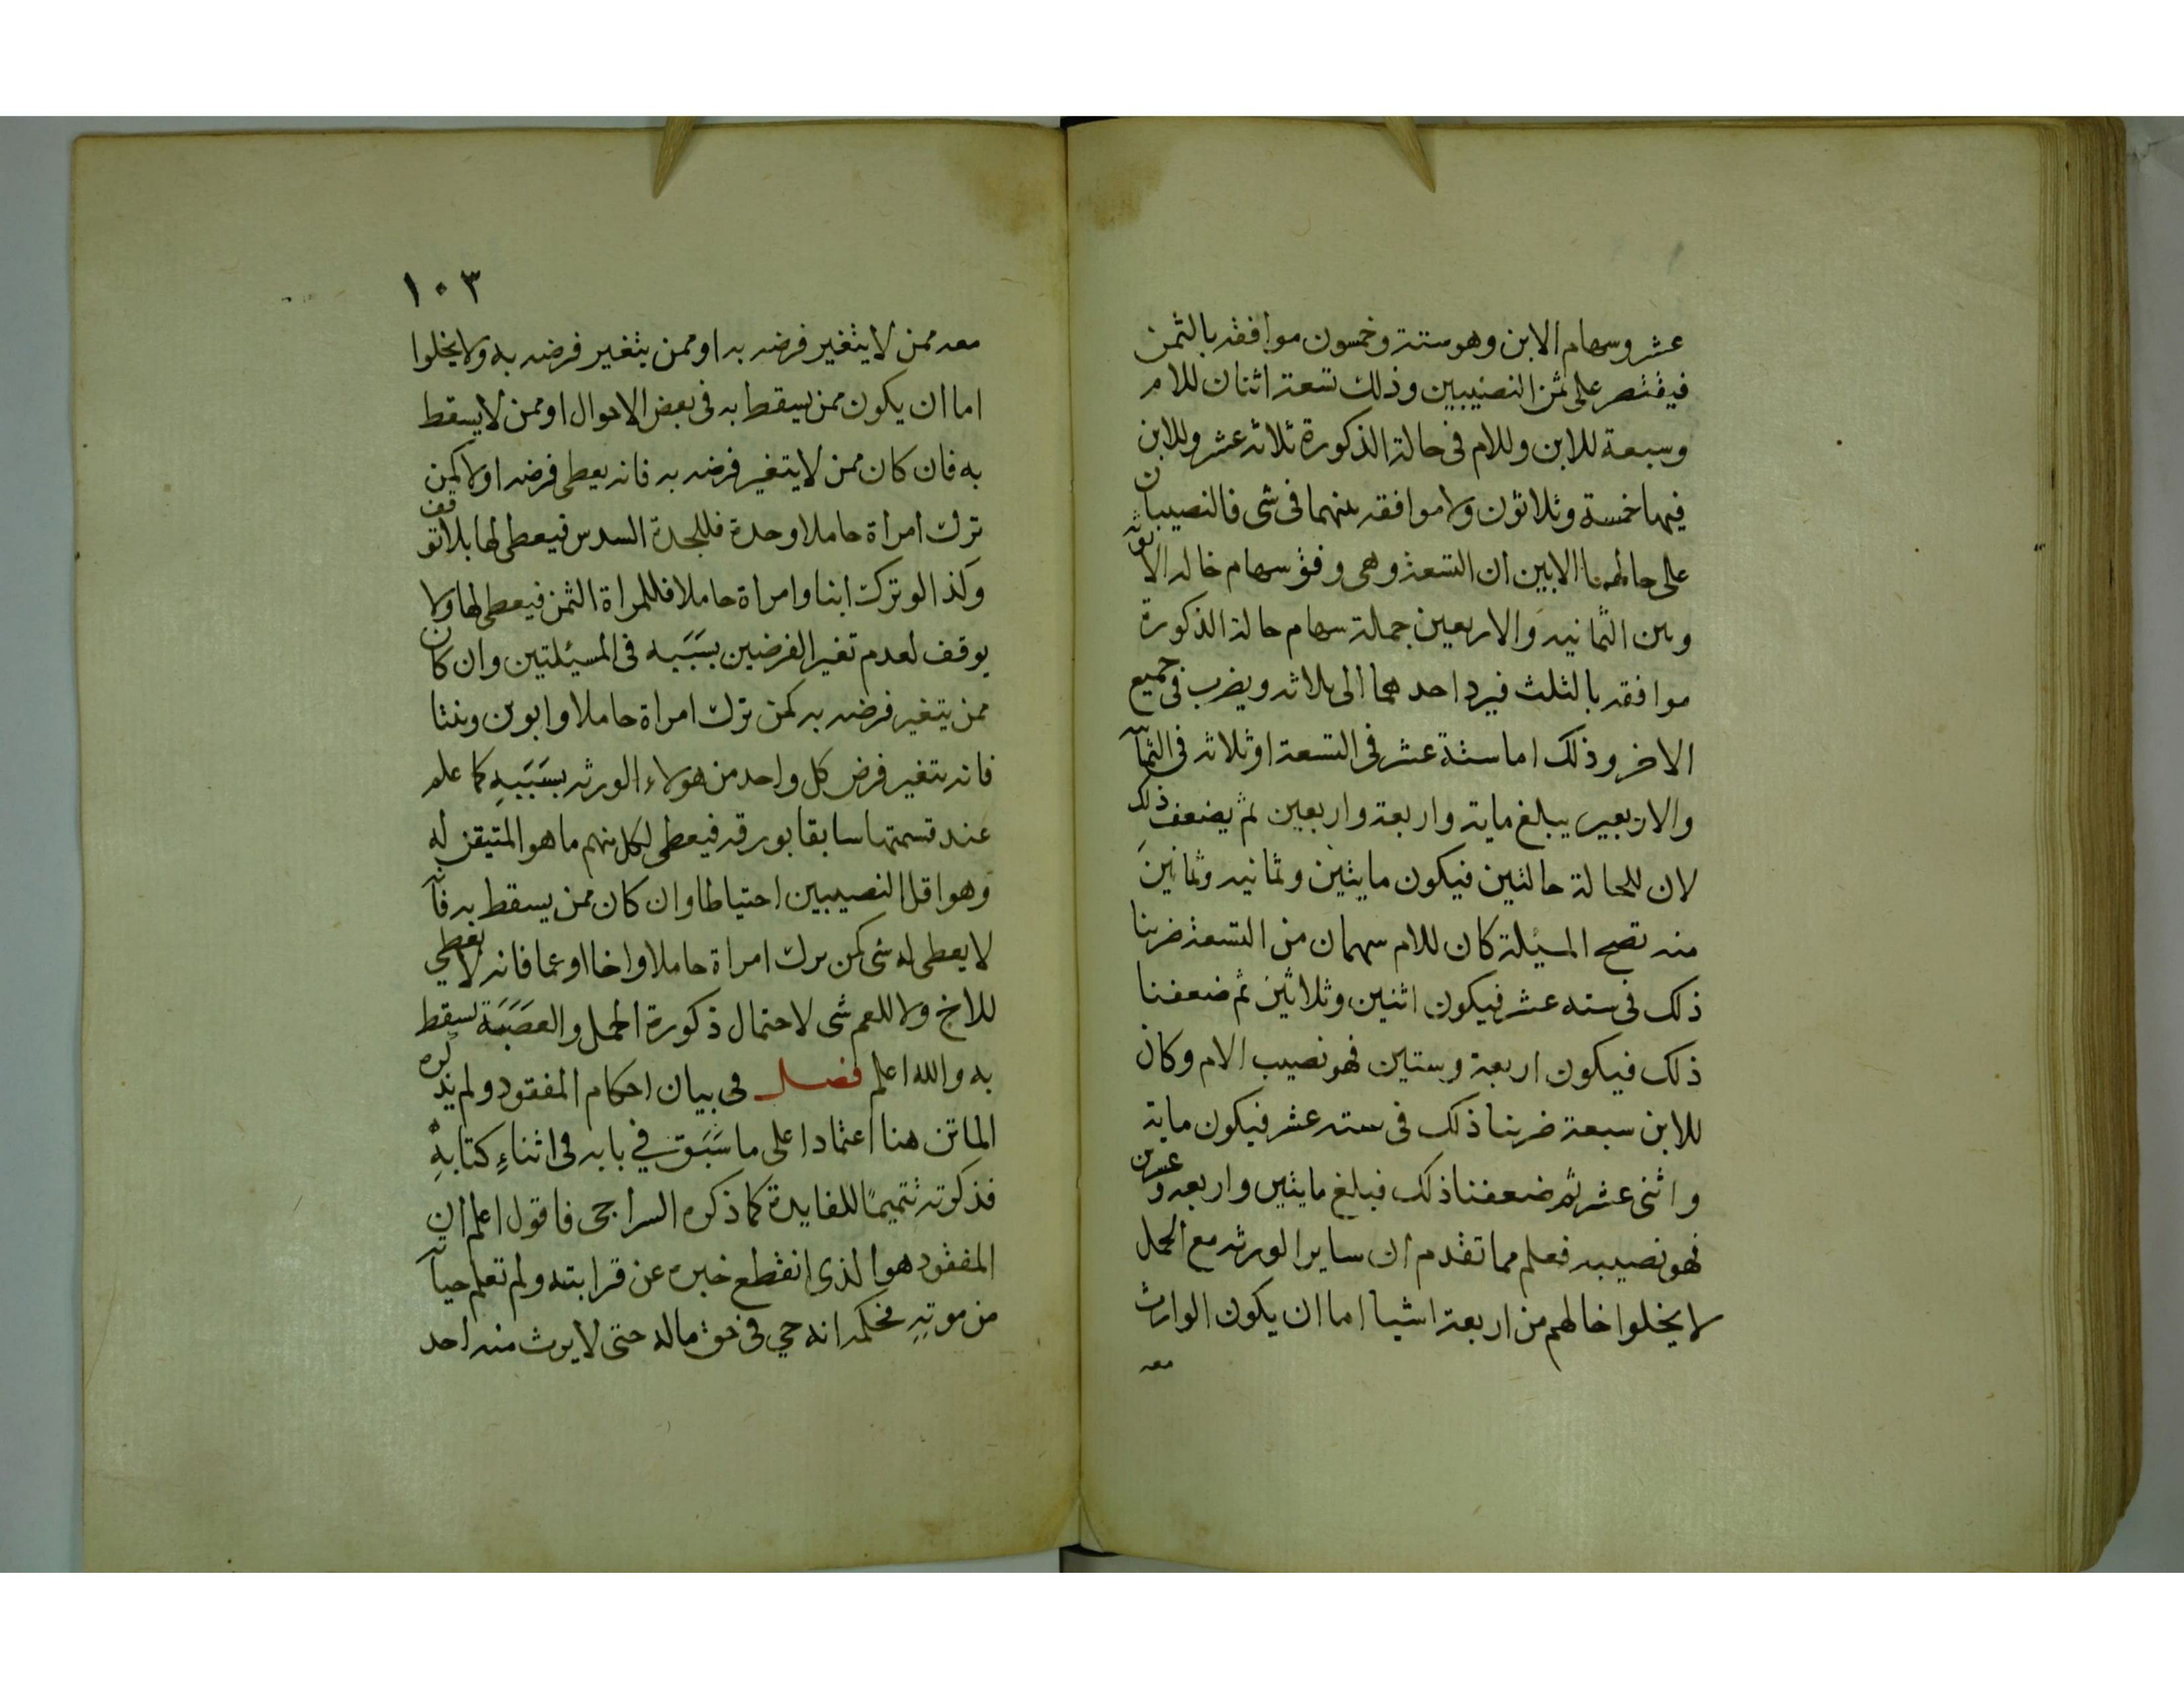 عشر وسهام الابن وهو ستة وخمسون موافقه بالثمن
فيقتصر على ثمن النصيبين وذلك تسعة اثنان للام
وسبعة للابن وللام فى حالة الذكورة ثلاثه عشر وللابن
فيها خمسة وثلاثون ولا موافقه بينهما فى شى فالنصيبان
على حالهما الا بين ان التسعة وهى وفق سهام حاله الانوثه
وبين الثمانيه والاربعين جملة سهام حالة الذكورة
موافقه بالثلث فيرد احدهما الى ثلاثه ويضرب فى جميع
الاخر وذلك اما ستة عشر فى التسعة او ثلاثه فى الثما
والاربعين يبلغ ماية واربعة واربعين ثم يضعف ذلك
لان للحالة حالتين فيكون مايتين وثمانيه وثمانين
منه تصح المسيلة كان للام سهمان من التسعة ضربنا
ذلك فى سته عشر فيكون اثنين وثلاثين ثم ضعفنا
ذلك فيكون اربعة وستين فهو نصيب الام وكان
للابن سبعة ضربنا ذلك فى سته عشر فيكون ماية
واثنى عشر ثم ضعفنا ذلك فبلغ مايتين واربعه وعشرين
فهو نصيبه فعلم مما تقدم ان ساير الورثه مع الحمل
لا يخلوا حالهم من اربعة اشيا اما ان يكون الوارث
معه
١٠٣
معه ممن لا يتغير فرضه به او ممن يتغير فرضه به ولا يخلوا
اما ان يكون ممن يسقط به فى بعض الاحوال او ممن لا يسقط
به فان كان ممن لا يتغير فرضه به فانه يعطى فرضه اولا كمن
ترك امراة حاملا وجدة فللجدة السدس فيعطى لها بلا توقف
وكذا لو تركت ابنا وامراة حاملا فللمراة الثمن فيعطى لها ولا
يوقف لعدم تغير الفرضين بسَبَبه فى المسيئلتين وان كان
ممن يتغير فرضه به كمن ترك امراة حاملا وابوين وبنتا
فانه يتغير فرض كل واحد من هولاء الورثه بسَبَبهِ كما علم
عند قسمتها سابقا بورقه فيعطى لكل منهم ما هو المتيقن له
وهو اقل النصيبين احتياطا وان كان ممن يسقط به فا
لا يعطى له شى كمن ترك امراة حاملا واخا او عما فانه لا يعطي
للاخ ولا للعم شى لاحتمال ذكورة الحمل والعصَبَة تسقط
به والله اعلم فصل فى بيان احكام المفقود ولم يذكره
الماتن هنا اعتمادا على ما سَبَق في بابه فى اثناءِ كتابهِ
فذكرته تتميمًا للفايدة كما ذكره السراجى فاقول اعلم ان
المفقود هو الذى انقطع خبره عن قرابته ولم تعلم حيا
من موتهِ فحكمه انه حي فى حق ماله حتى لا يرث منه احد